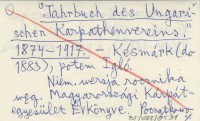 "Jahrbuch des Ungari-
schen Karpathenvereins."
1874-1917. - Késmárk (do
1883), potem Igló.
Niem. wersja rocznika
węg. Magyarországi Kárpát-
egyesület Évkönyve.